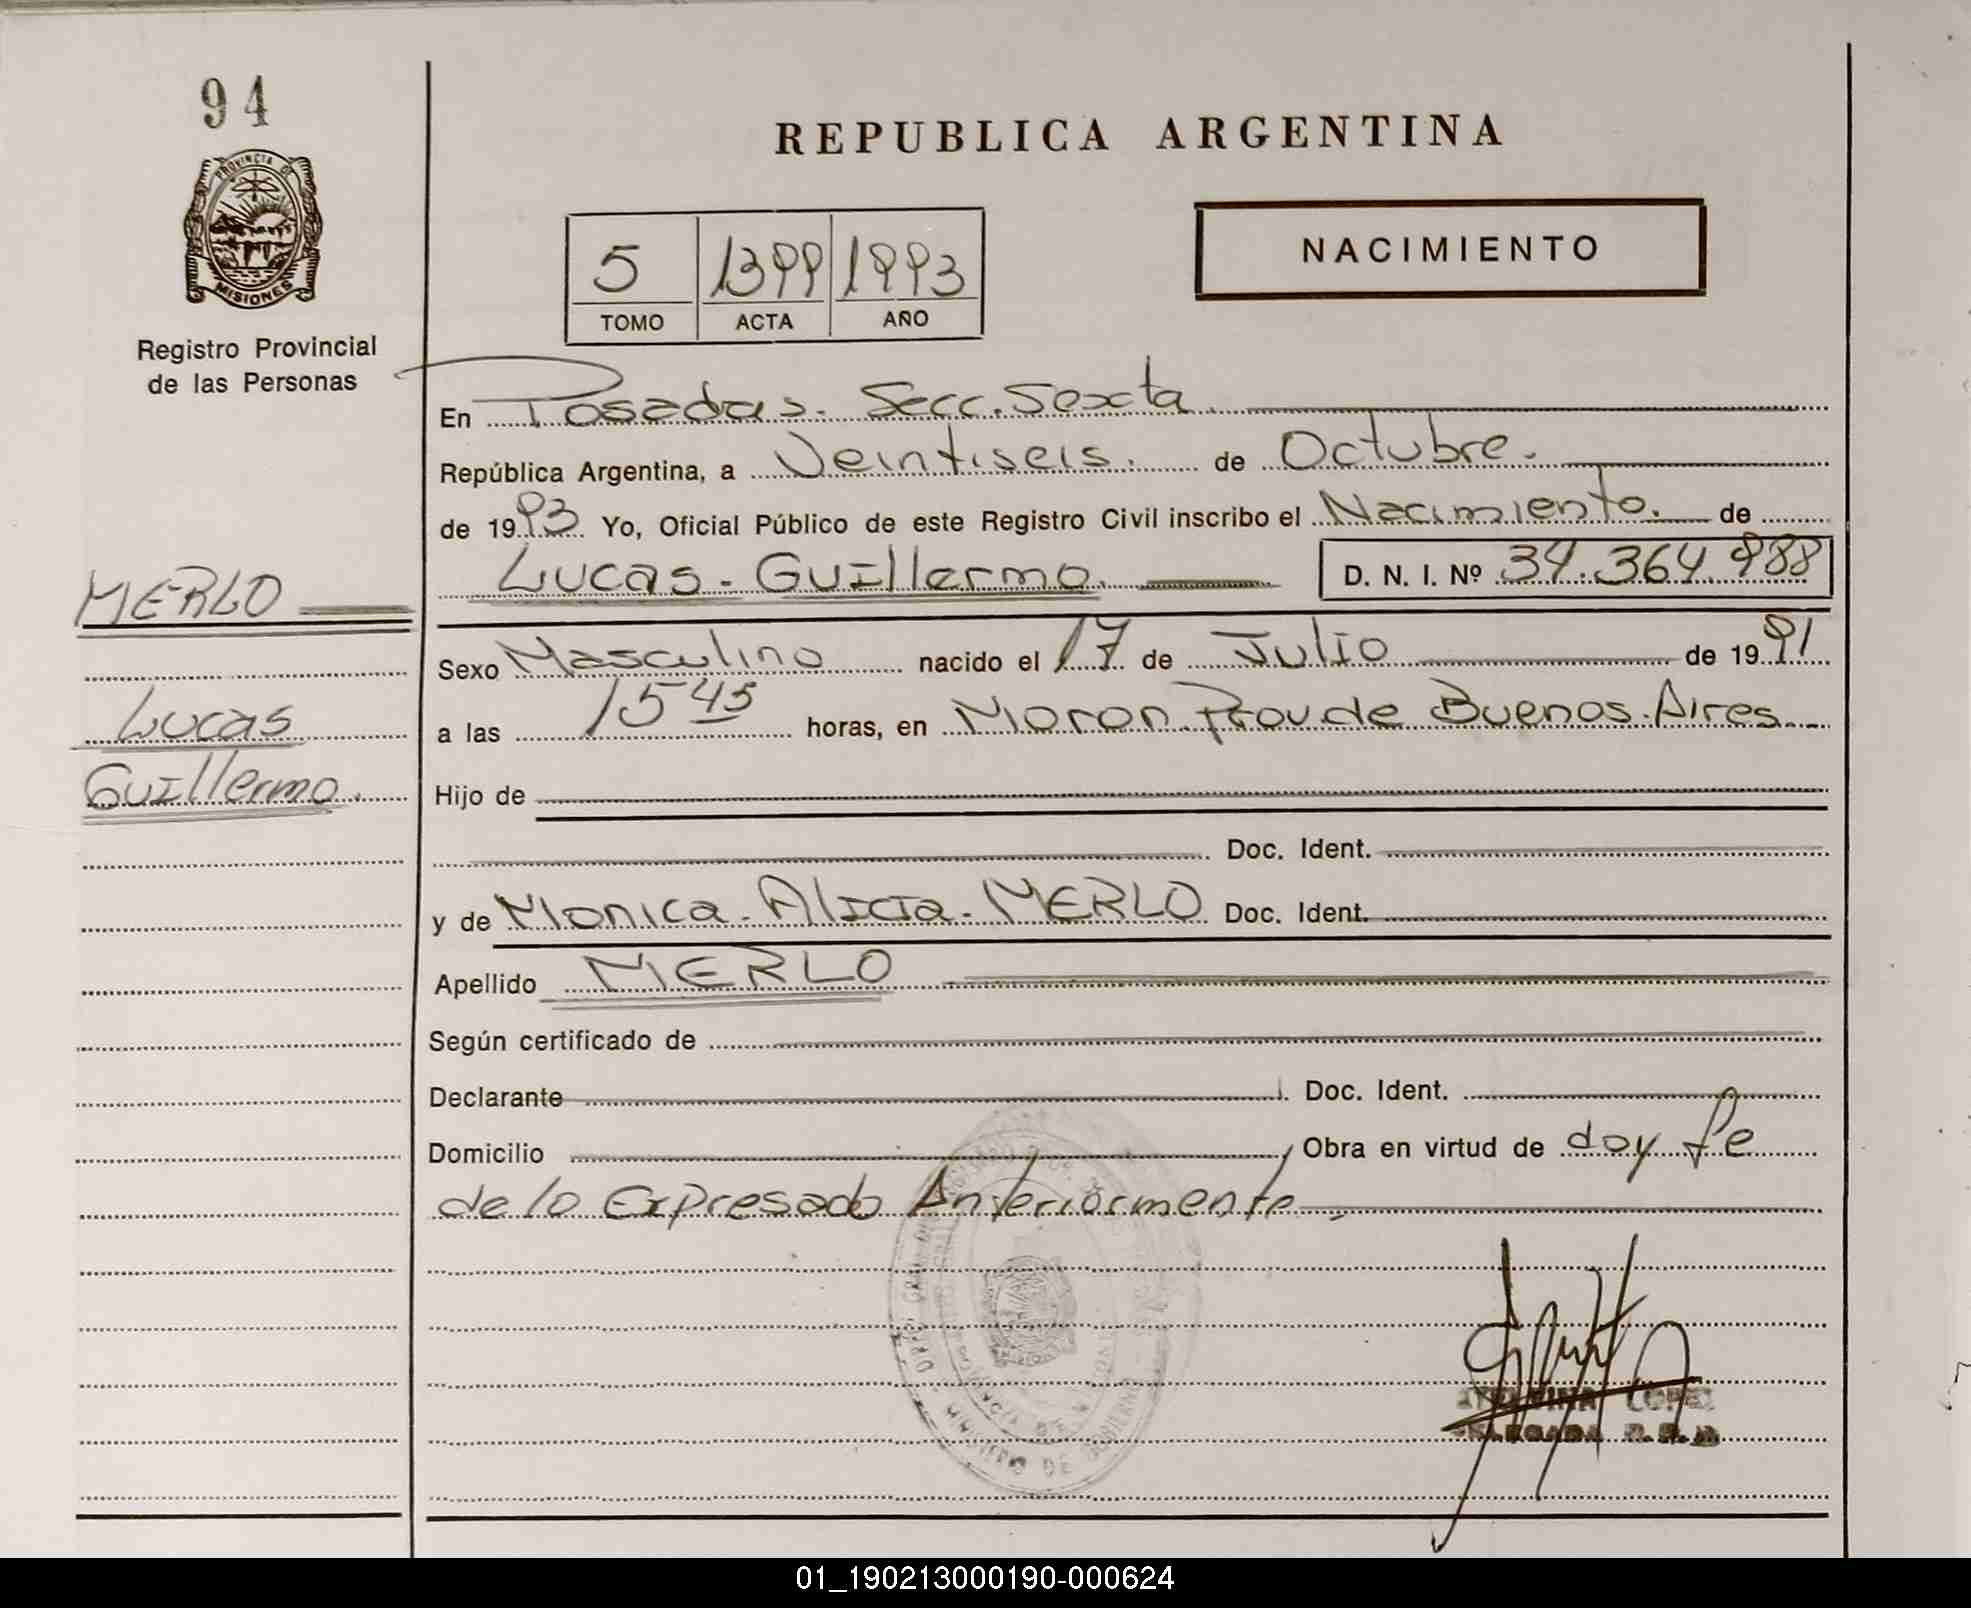 94
PROVINCIA DE
MISIONES
Registro Provincial
de las Personas
MERLO
Lucas
Guillermo.
REPUBLICA ARGENTINA
5 1399 1993
TOMO ACTA AÑO
NACIMIENTO
En Posadas. Secc. Sexta
República Argentina, a Veintiseis. de Octubre.
de 1993 Yo, Oficial Público de este Registro Civil inscribo el Nacimiento. de
Lucas - Guillermo. D. N. I. Nº 34.364.988
Sexo Masculino nacido el 17 de Julio de 1991
a las 15 45 horas, en Moron Prov. de Buenos Aires
Hijo de
Doc. Ident.
y de Monica. Alicia. MERLO Doc. Ident.
Apellido MERLO
Según certificado de
Declarante Doc. Ident.
Domicilio Obra en virtud de doy fe
de lo Expresado Anteriormente.
MINISTERIO DE GOBIERNO
LOPEZ
01_190213000190-000624